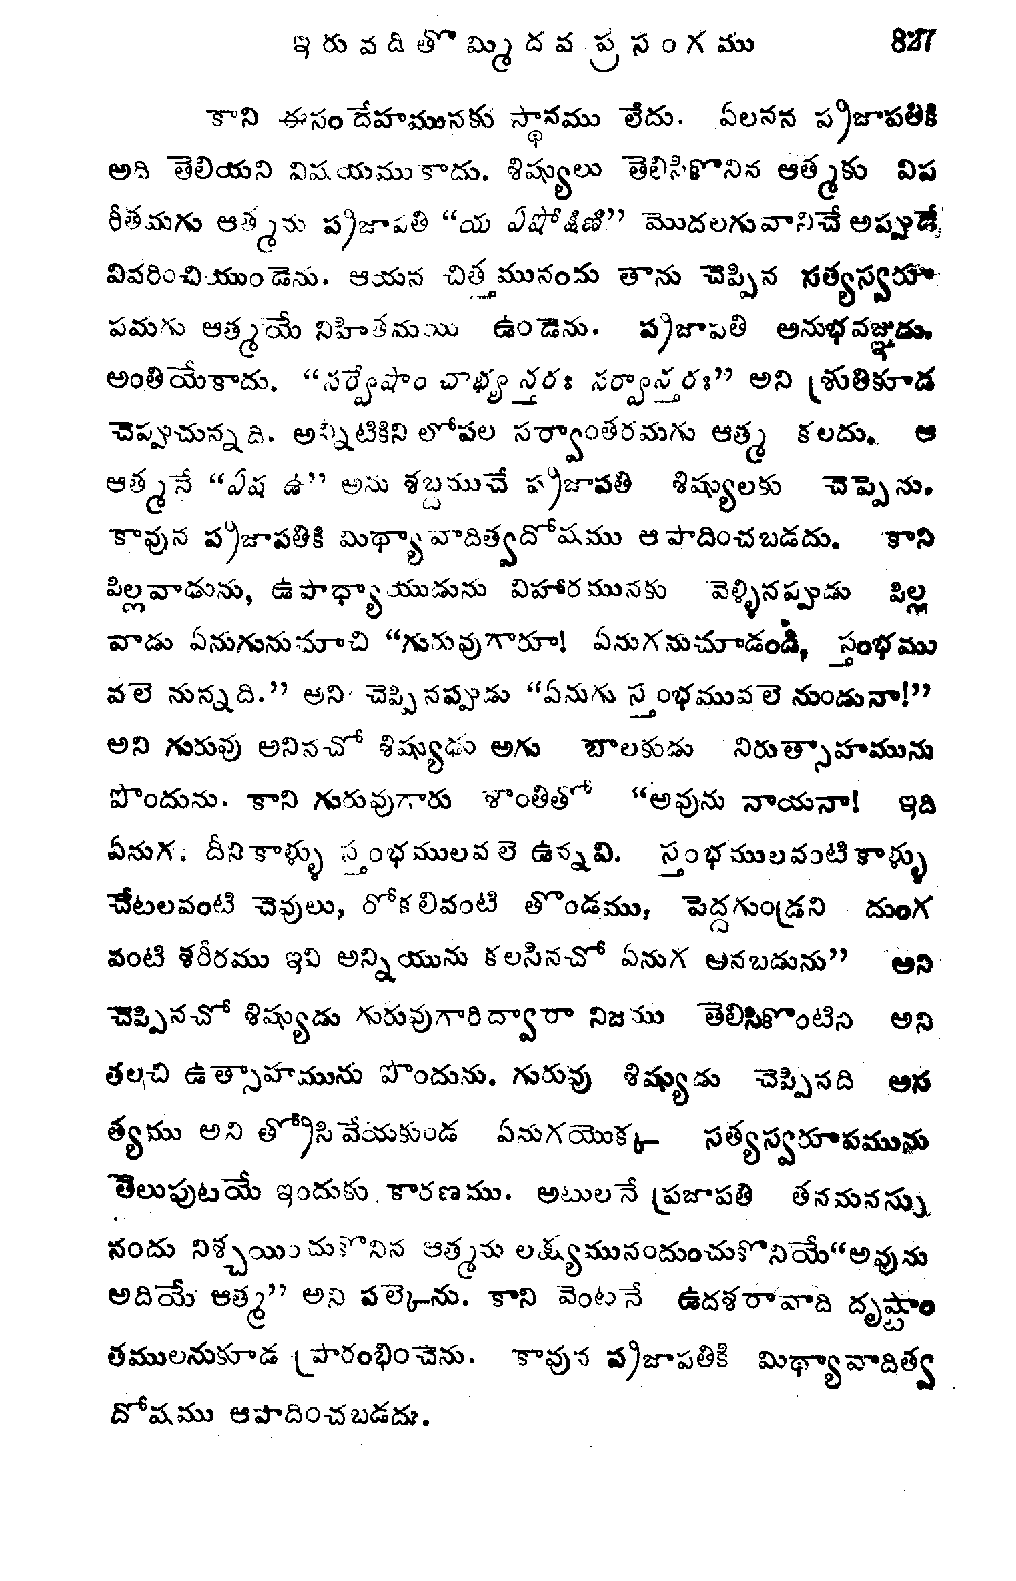 ఇరువదితొమ్మిదవ ప్రసంగము 827
కాని ఈసందేహమునకు స్థానము లేదు. ఏలనన ప్రజాపతికి
అది తెలియని విషయముకాదు. శిష్యులు తెలిసికొనిన ఆత్మకు విప
రీతమగు ఆత్మను ప్రజాపతి “య ఏషోక్షిణి” మొదలగువానిచే అప్పుడే
వివరించియుండెను. ఆయన చిత్తమునందు తాను చెప్పిన సత్యస్వరూ
పమగు ఆత్మయే నిహితమయి ఉండెను. ప్రజాపతి అనుభవజ్ఞుడు.
అంతియేకాదు. “సర్వేషాం చాభ్యన్తరః సర్వాన్తరః” అని శ్రుతికూడ
చెప్పుచున్నది. అన్నిటికిని లోపల సర్వాంతరమగు ఆత్మ కలదు. ఆ
ఆత్మనే “ఏష ఉ” అను శబ్దముచే ప్రజాపతి శిష్యులకు చెప్పెను.
కావున ప్రజాపతికి మిథ్యావాదిత్వదోషము ఆపాదించబడదు. కాని
పిల్లవాడును, ఉపాధ్యాయుడును విహారమునకు వెళ్ళినప్పుడు పిల్ల
వాడు ఏనుగునుచూచి “గురువుగారూ! ఏనుగనుచూడండి, స్తంభము
వలె నున్నది.” అని చెప్పినప్పుడు “ఏనుగు స్తంభమువలె నుండునా!”
అని గురువు అనినచో శిష్యుడు అగు బాలకుడు నిరుత్సాహమును
పొందును. కాని గురువుగారు శాంతితో “అవును నాయనా! ఇది
ఏనుగ. దీనికాళ్ళు స్తంభములవలె ఉన్నవి. స్తంభములవంటికాళ్ళు
చేటలవంటి చెవులు, రోకలివంటి తొండము, పెద్దగుండ్రని దుంగ
వంటి శరీరము ఇవి అన్నియును కలసినచో ఏనుగ అనబడును” అని
చెప్పినచో శిష్యుడు గురువుగారిద్వారా నిజము తెలిసికొంటిని అని
తలచి ఉత్సాహమును పొందును. గురువు శిష్యుడు చెప్పినది అస
త్యము అని త్రోసివేయకుండ ఏనుగయొక్క సత్యస్వరూపమును
తెలుపుటయే ఇందుకు కారణము. అటులనే ప్రజాపతి తనమనస్సు
నందు నిశ్చయించుకొనిన ఆత్మను లక్ష్యమునందుంచుకొనియే“అవును
అదియే ఆత్మ” అని పల్కెను. కాని వెంటనే ఉదశరావాది దృష్టాం
తములనుకూడ ప్రారంభించెను. కావున ప్రజాపతికి మిథ్యావాదిత్వ
దోషము ఆపాదించబడదు.